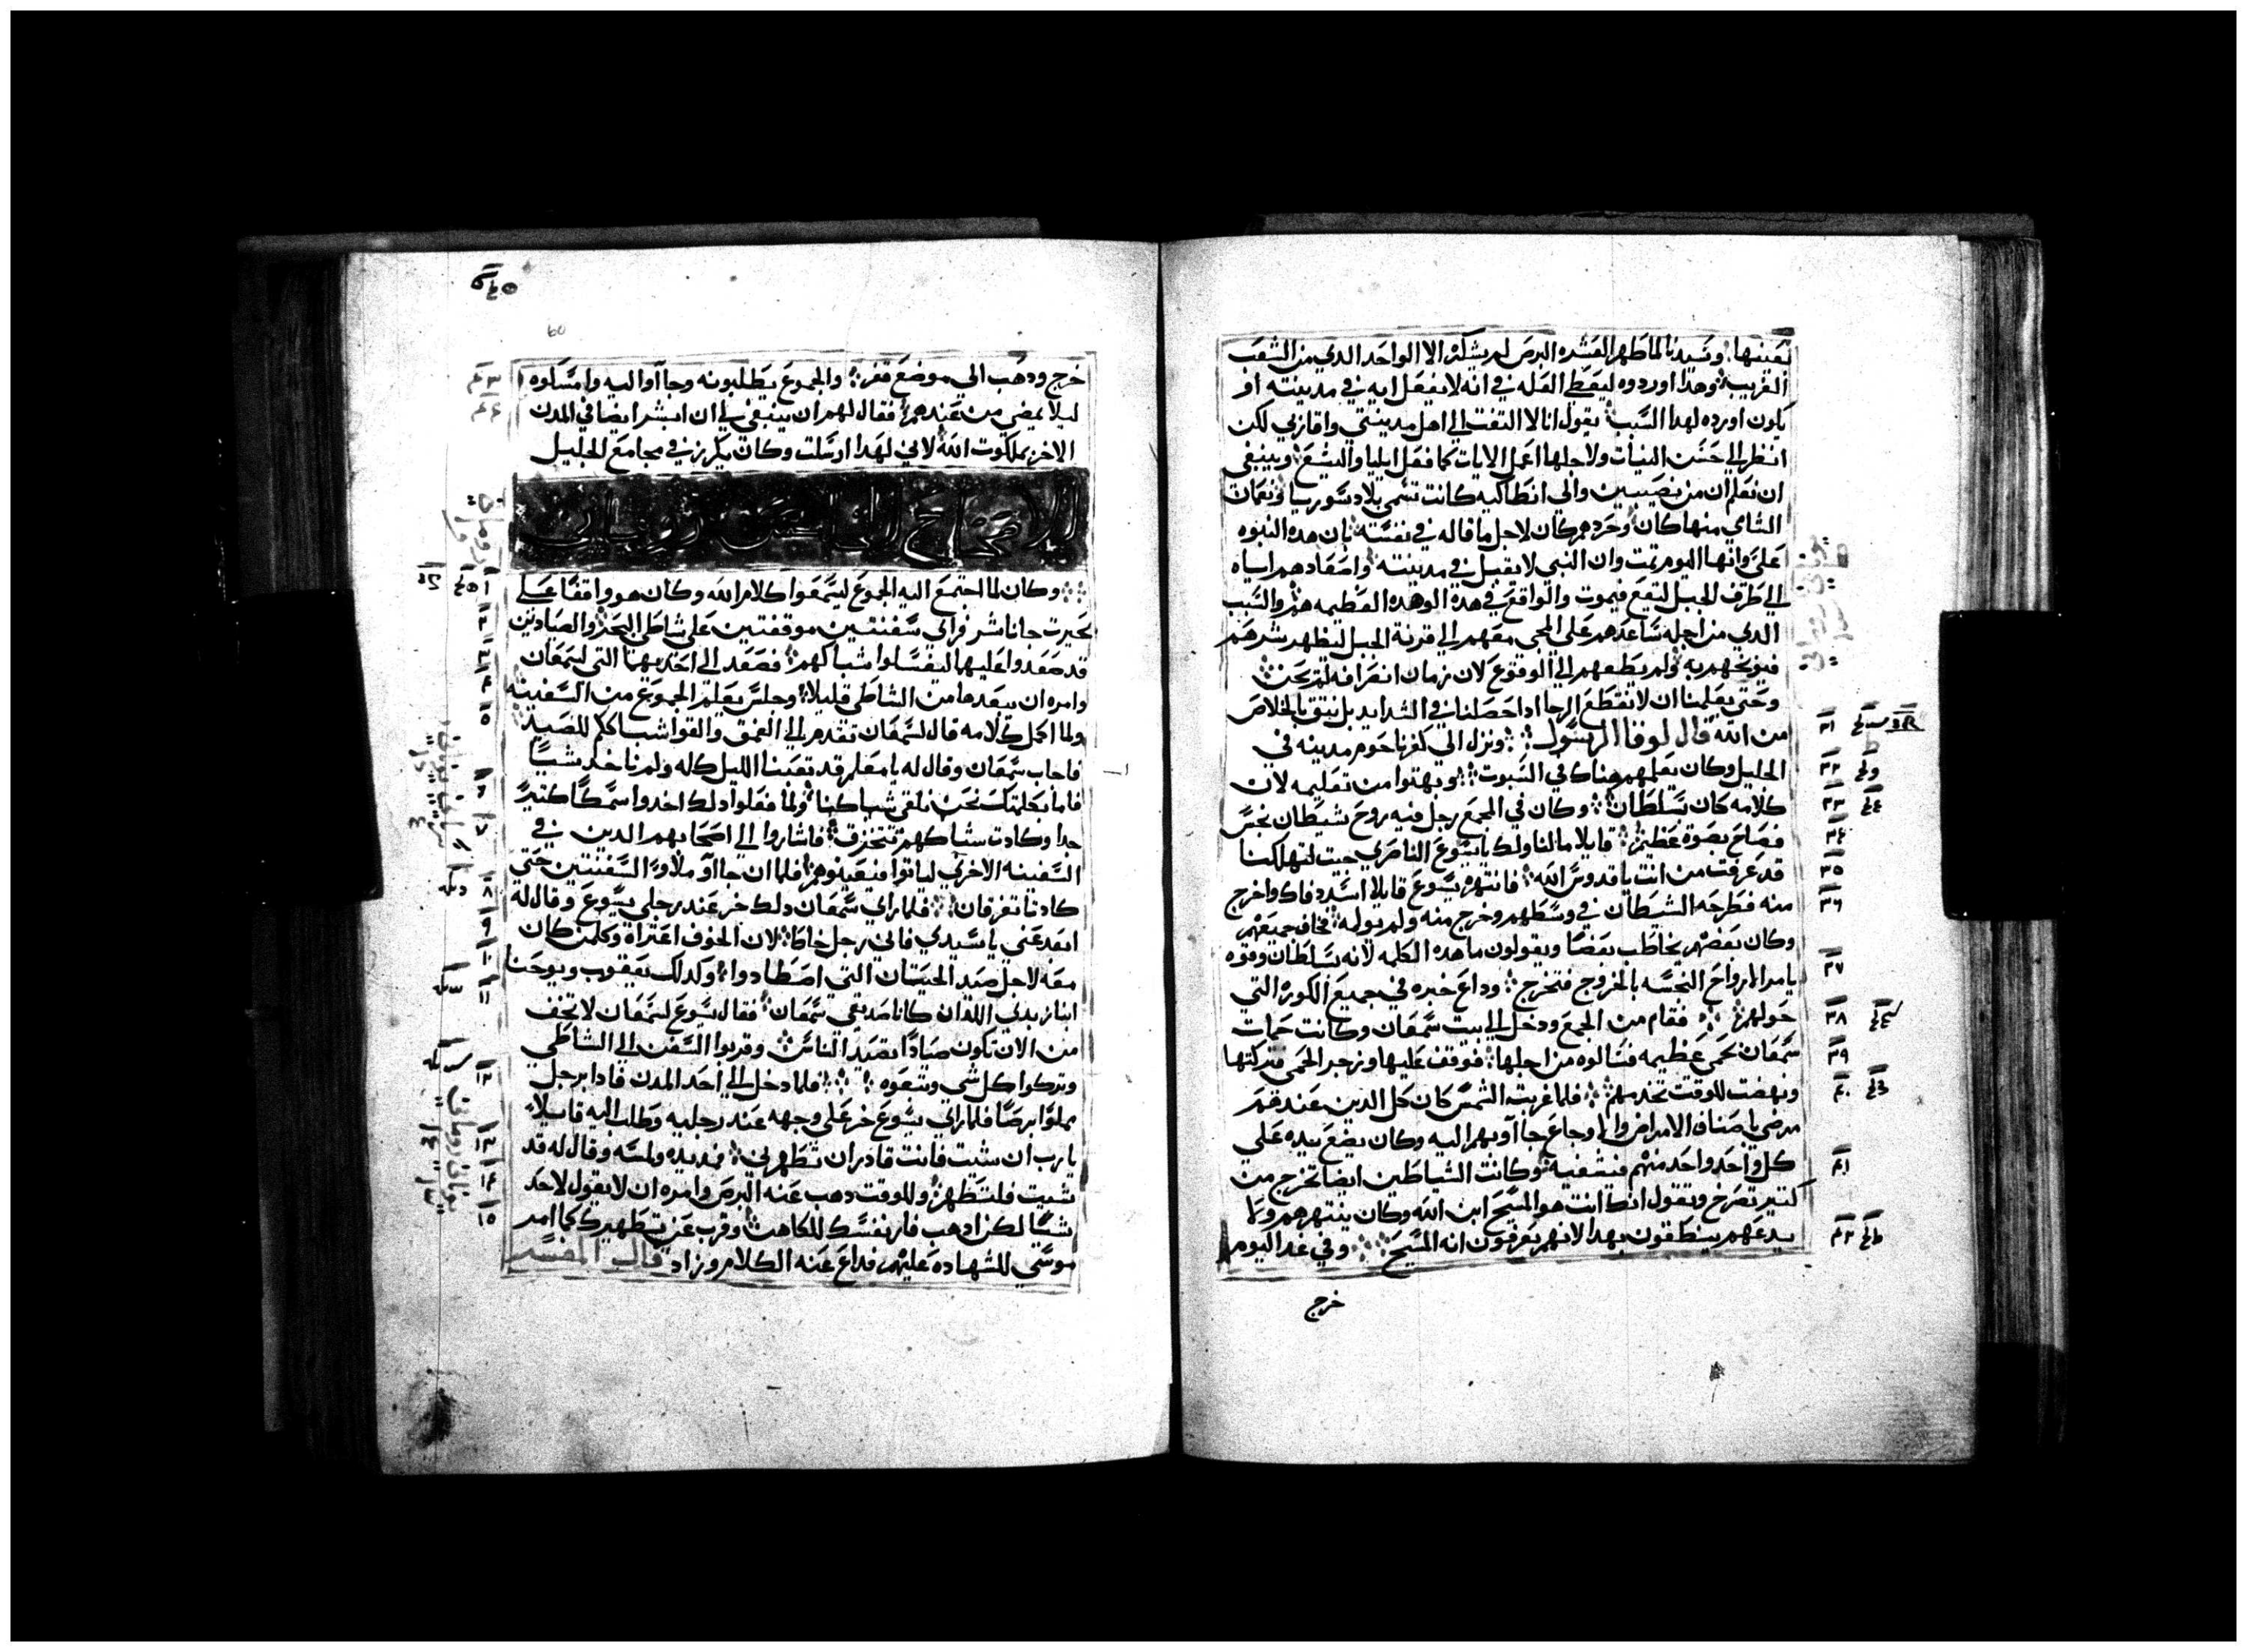 بعينها وسيدنا لما طهر العشره البرص لم يشكره الا الواحد الدي من الشعب
الغريب وهدا اورده ليعطي العله في انه لا يفعل ايه في مدينته او
يكون اورده لهدا السبب يقول انا لا التفت الي اهل مدينتي واقاربي لكن
انظر الي حسن النيات ولاجلها اعمل الايات كما فعل ايليا واليشع وينبغي
ان نعلم ان من نصيبين والي انطاكيه كانت تسمي بلاد سوريا ونعمان
الشامي منها كان وحردهم كان لاجل ما قاله في نفسه بان هده النبوه
علي وانها اليوم تمت وان النبي لا يقبل في مدينته واصعادهم اياه
الي طرف الجبل ليقع فيموت والواقع في هده الوهده العظيمه والسبب
الدي من اجله ساعدهم علي المجي معهم الي قرنة الجبل ليظهر شرهم
فيوبخهم به ولم يطعهم الي الوقوع لان زمان انصرافه لم يحن
وحتي يعلمنا ان لا نقطع الرجا ادا حصلنا في الشدايد بل نثق بالخلاص
من الله قال لوقا الرسول ونزل الي كفرناحوم مدينه في
الجليل وكان يعلمهم هناك في السبوت وبهتوا من تعليمه لان
كلامه كان بسلطان وكان في المجمع رجل فيه روح شيطان نجس
فصاح بصوة عظيم قايلا ما لنا ولك يا يسوع الناصري جيت لتهلكنا
قد عرفت من انت يا قدوس الله فانتهره يسوع قايلا اسدد فاك واخرج
منه فطرحه الشيطان في وسطهم وخرج منه ولم يولمه فخاف جميعهم
وكان بعضهم يخاطب بعضا ويقولون ما هده الكلمه لانه بسلطان وقوه
يامر الارواح النجسه بالخروج فتخرج وداع خبره في جميع الكوره التي
حولهم فقام من المجمع ودخل الي بيت سمعان وكانت حمات
سمعان بحمي عظيمه فسالوه من اجلها فوقف عليها وزجر الحمي فتركتها
ونهضت للوقت تخدمهم فلما غربت الشمس كان كل الدين عندهم
مرضي باصناف الامراض والاوجاع جاآوبهم اليه وكان يضع يده علي
كل واحد واحد منهم فيشفيه وكانت الشياطين ايضا تخرج من
كتير تصرخ وتقول انك انت هو المسيح ابن الله وكان ينتهرهم ولا
يدعهم ينطقون بهدا لانهم يعرفون انه المسيح وفي غد اليوم
خرج
٣١
٣٢
٣٣
٣٤
٣٥
٣٦
٣٧
٣٨
٣٩
٤٠
٤١
٤٢
60
خرج ودهب الي موضع قفر والجموع يطلبونه وجاآوا اليه وامسكوه
ليلا يمضي من عندهم فقال لهم ان ينبغي لي ان ابشر ايضا في المدن
الاخر بملكوت الله لاني لهدا ارسلت وكان يكرز في مجامع الجليل
الاصحاح الخامس روماني
وكان لما اجتمع اليه الجموع ليسمعوا كلام الله وكان هو واقفا علي
بحيرت جاناشر فراي سفينتين موقفتين علي شاطي البحر والصيادين
قد صعدوا عليهما ليغسلوا شباكهم فصعد الي احديهما التي لسمعان
وامره ان يبعدها من الشاطي قليلا وجلس يعلم الجموع من السفينه
ولما اكمل كلامه قال لسمعان تقدم الي العمق والقوا شباككم للصيد
فاجاب سمعان وقال له يا معلم قد تعبنا الليل كله ولم ناخد شييا
فاما بكلمتك نحن نلقي شباكنا ولما فعلوا دلك اخدوا سمكا كتيرا
جدا وكادت شباكهم تتخزق فاشاروا الي اصحابهم الدين في
السفينه الاخري لياتوا فيعينوهم فلما ان جاآو ملاوا السفينتين حتي
كادتا تغرقان فلما راي سمعان دلك خر عند رجلي يسوع وقال له
ابعد عني يا سيدي فاني رجل خاط لان الخوف اعتراه وكلمن كان
معه لاجل صيد الحيتان التي اصطادوا وكدلك يعقوب ويوحنا
ابنا زبدي اللدان كانا صديقي سمعان فقال يسوع لسمعان لا تخف
من الان تكون صيادا تصيد الناس وقربوا السفن الي الشاطي
وتركوا كل شي وتبعوه فلما دخل الي احد المدن فادا برجل
مملوا برصا فلما راي يسوع خر علي وجهه عند رجليه وطلب اليه قايلا
يا رب ان شيت فانت قادر ان تطهرني فمد يده ولمسه وقال له قد
شيت فلتطهر وللوقت دهب عنه البرص وامره ان لا يقول لاحد
شيا لكن ادهب فار نفسك للكاهن وقرب عن تطهيرك كما امر
موسي للشهاده عليهم فداع عنه الكلام وزاد قال المفسر
٤٣
٤٤
١
٢
٣
٤
٥
٦
٧
٨
٩
١٠
١١
١٢
١٣
١٤
١٥